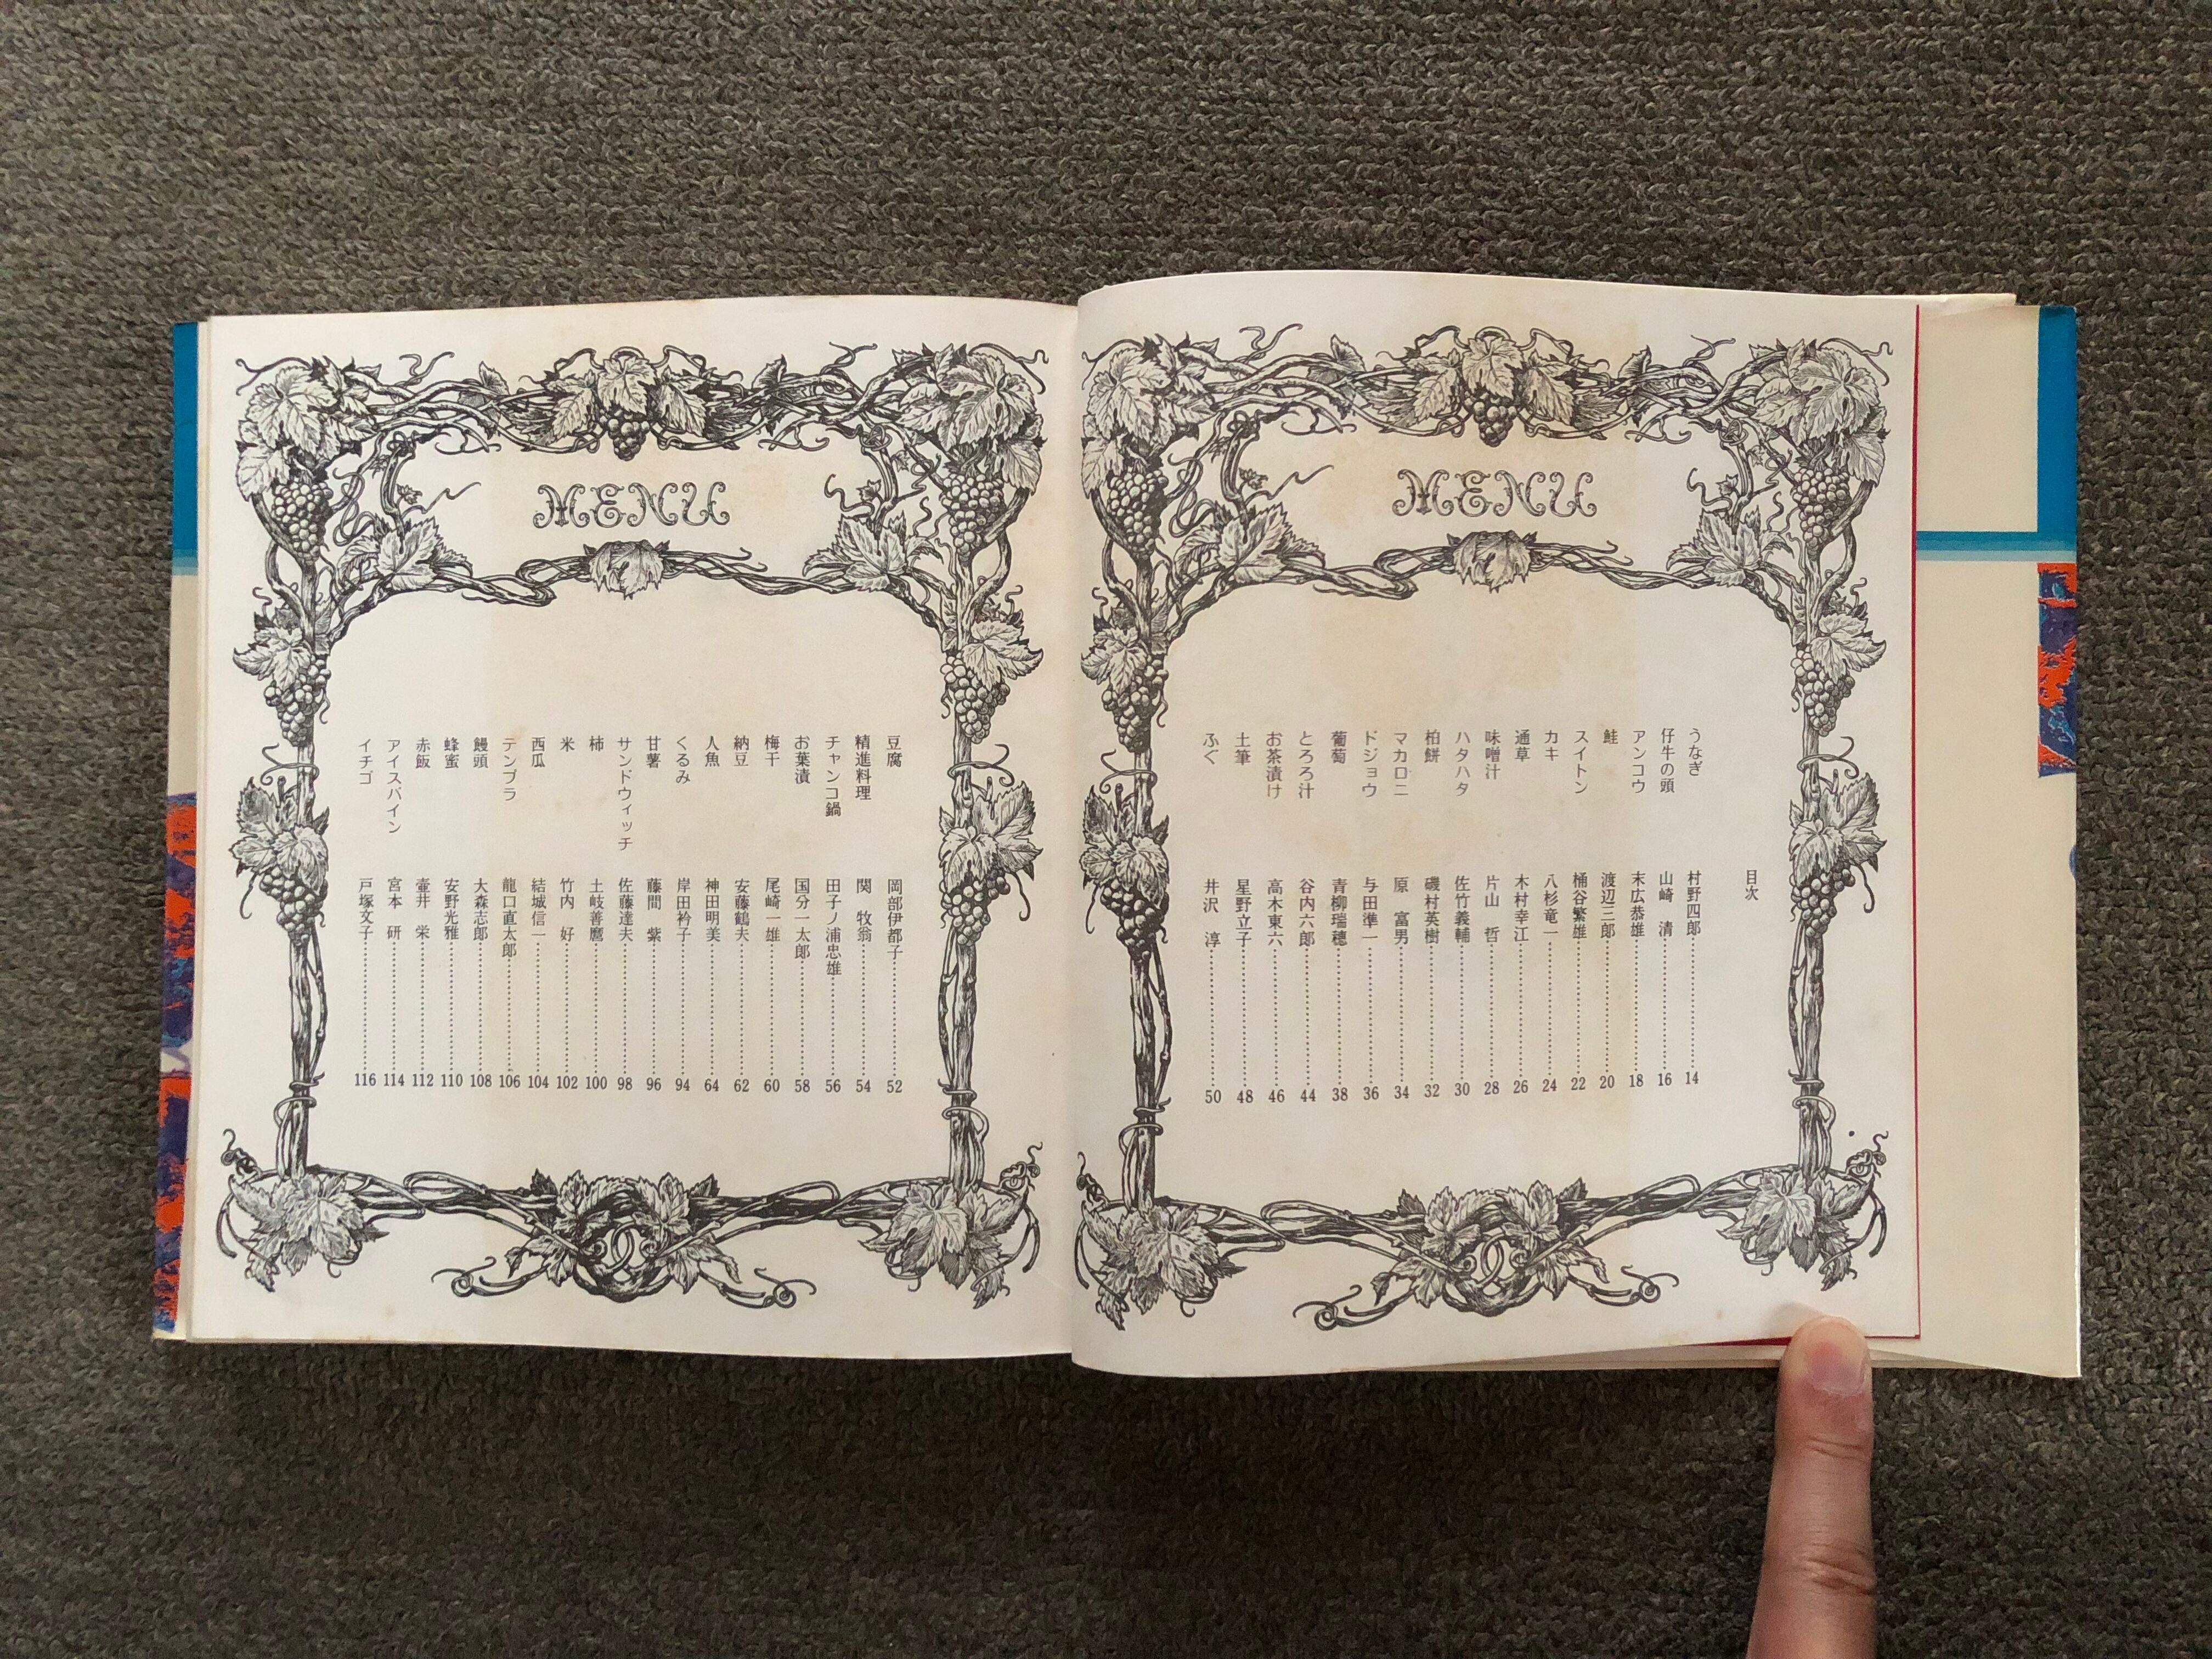 MENU
目次
うなぎ 村野四郎 14
仔牛の頭 山崎 清 16
アンコウ 末広恭雄 18
鮭 渡辺三郎 20
スイトン 桶谷繁雄 22
カキ 八杉竜一 24
通草 木村幸江 26
味噌汁 片山 哲 28
ハタハタ 佐竹義輔 30
柏餅 磯村英樹 32
マカロニ 原 富男 34
ドジョウ 与田準一 36
葡萄 青柳瑞穂 38
とろろ汁 谷内六郎 44
お茶漬け 高木東六 46
土筆 星野立子 48
ふぐ 井沢 淳 50
MENU
豆腐 岡部伊都子 52
精進料理 関 牧翁 54
チャンコ鍋 田子ノ浦忠雄 56
お葉漬 国分一太郎 58
梅干 尾崎一雄 60
納豆 安藤鶴夫 62
人魚 神田明美 64
くるみ 岸田衿子 94
甘薯 藤間 紫 96
サンドウィッチ 佐藤達夫 98
柿 土岐善麿 100
米 竹内 好 102
西瓜 結城信一 104
テンプラ 龍口直太郎 106
饅頭 大森志郎 108
蜂蜜 安野光雅 110
赤飯 壷井 栄 112
アイスバイン 宮本 研 114
イチゴ 戸塚文子 116